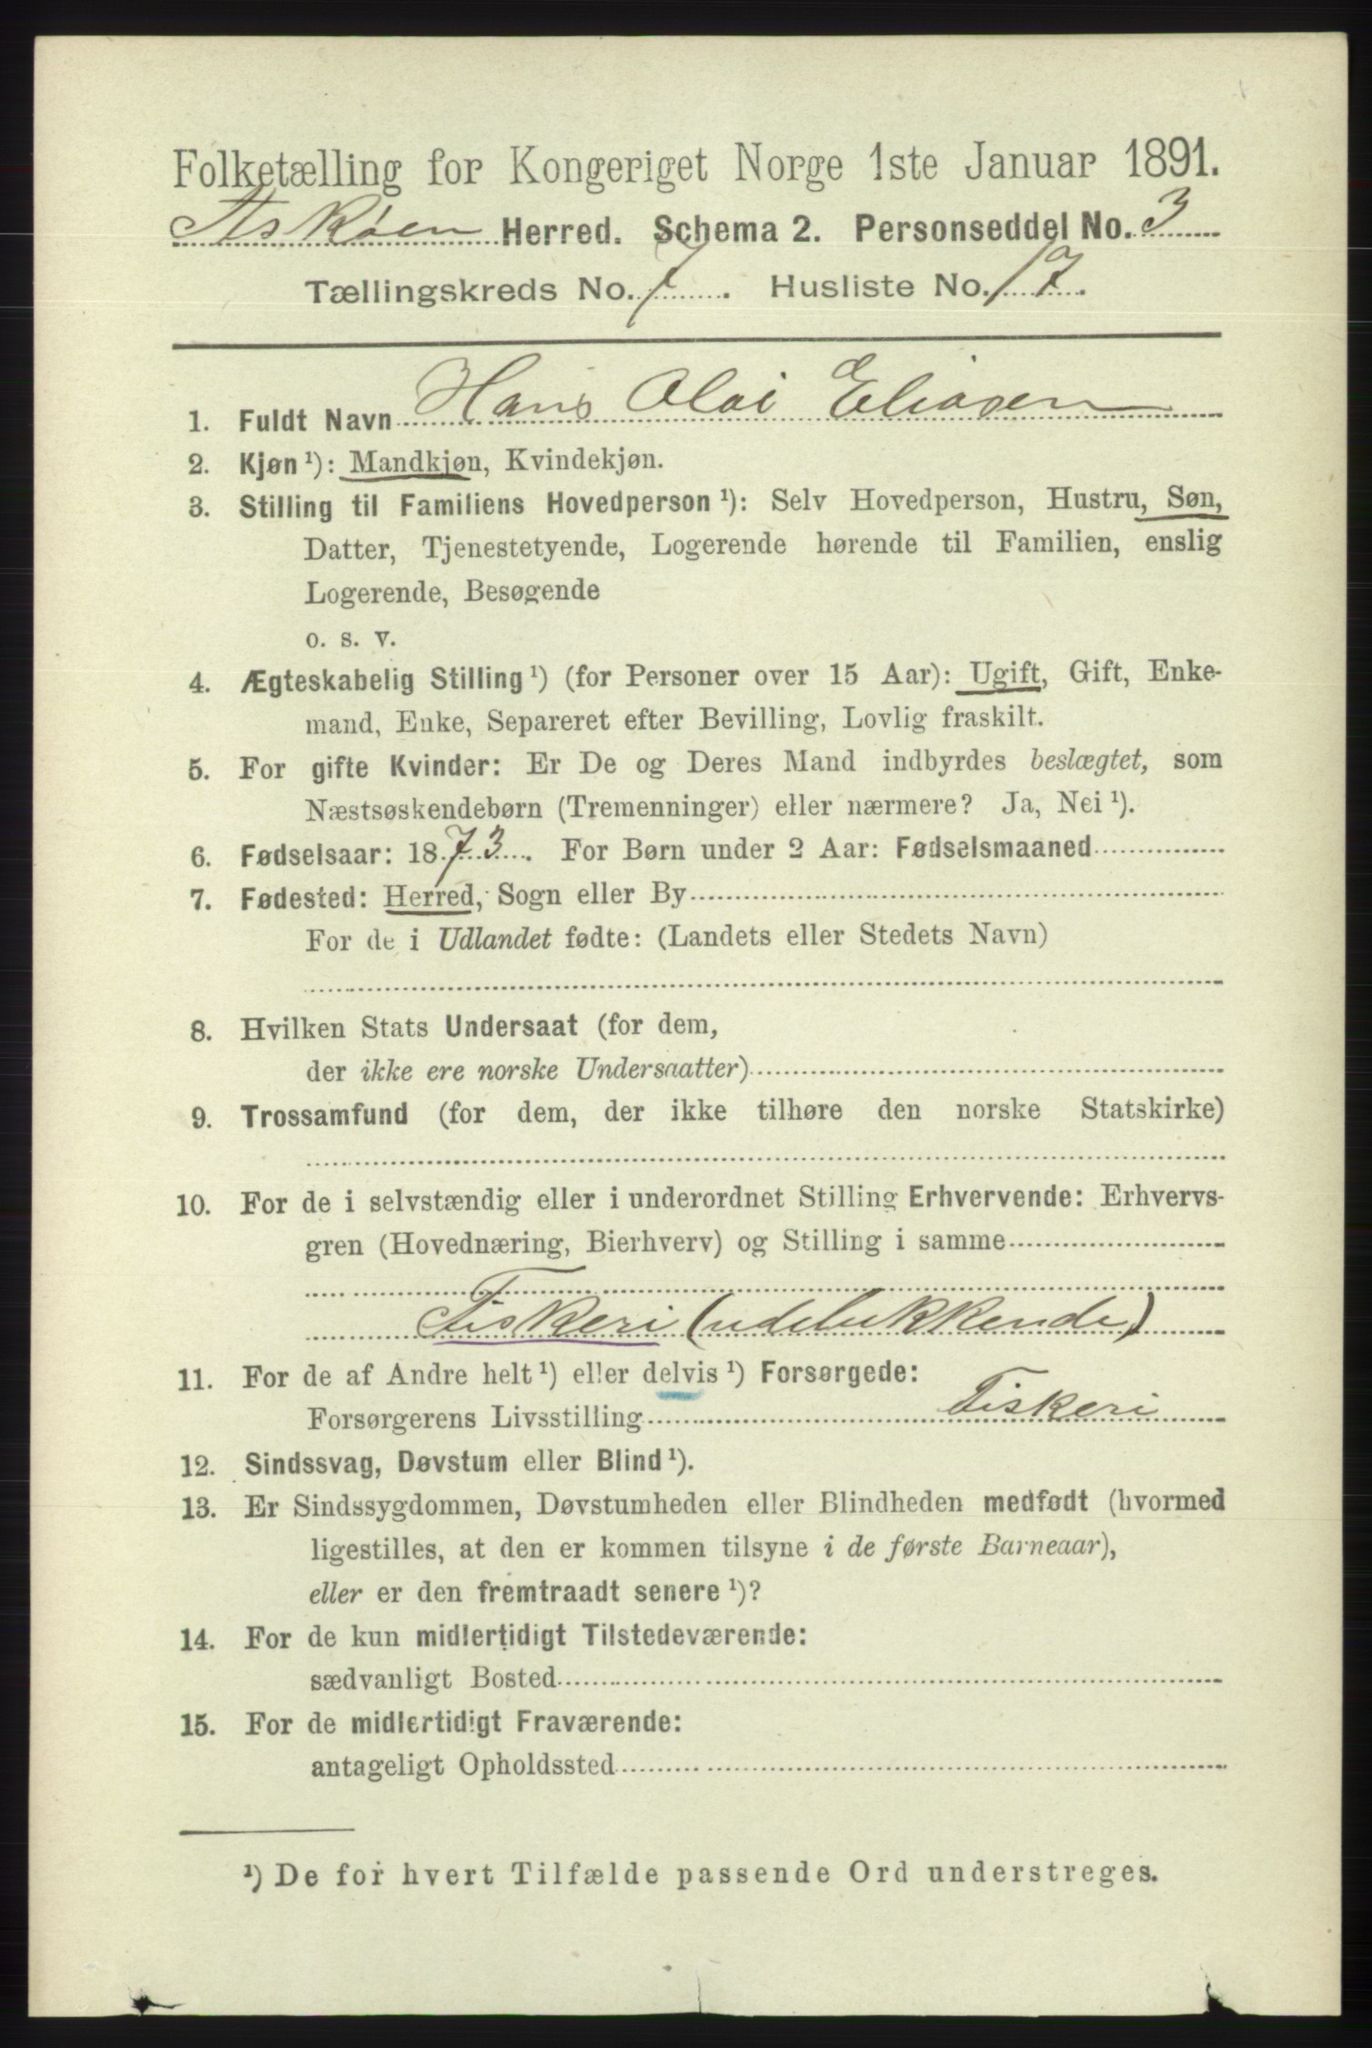 Folketælling for Kongeriget Norge 1ste Januar 1891.
Askøen Herred. Schema 2. Personseddel No. 3
Tællingskreds No. 7. Husliste No. 17.
1. Fuldt Navn Hans Olai Eliasen
2. Kjøn ¹): Mandkjøn, Kvindekjøn.
3. Stilling til Familiens Hovedperson ¹): Selv Hovedperson, Hustru, Søn,
Datter, Tjenestetyende, Logerende hørende til Familien, enslig
Logerende, Besøgende
o. s. v.
4. Ægteskabelig Stilling ¹) (for Personer over 15 Aar): Ugift, Gift, Enke-
mand, Enke, Separeret efter Bevilling, Lovlig fraskilt.
5. For gifte Kvinder: Er De og Deres Mand indbyrdes beslægtet, som
Næstsøskendebørn (Tremenninger) eller nærmere? Ja, Nei ¹).
6. Fødselsaar: 1873. For Børn under 2 Aar: Fødselsmaaned
7. Fødested: Herred, Sogn eller By
For de i Udlandet fødte: (Landets eller Stedets Navn)
8. Hvilken Stats Undersaat (for dem,
der ikke ere norske Undersaatter)
9. Trossamfund (for dem, der ikke tilhøre den norske Statskirke)
10. For de i selvstændig eller i underordnet Stilling Erhvervende: Erhvervs-
gren (Hovednæring, Bierhverv) og Stilling i samme
Fiskeri (udelukkende)
11. For de af Andre helt ¹) eller delvis ¹) Forsørgede:
Forsørgerens Livsstilling Fiskeri
12. Sindssvag, Døvstum eller Blind ¹).
13. Er Sindssygdommen, Døvstumheden eller Blindheden medfødt (hvormed
ligestilles, at den er kommen tilsyne i de første Barneaar),
eller er den fremtraadt senere ¹)?
14. For de kun midlertidigt Tilstedeværende:
sædvanligt Bosted
15. For de midlertidigt Fraværende:
antageligt Opholdssted
¹) De for hvert Tilfælde passende Ord understreges.